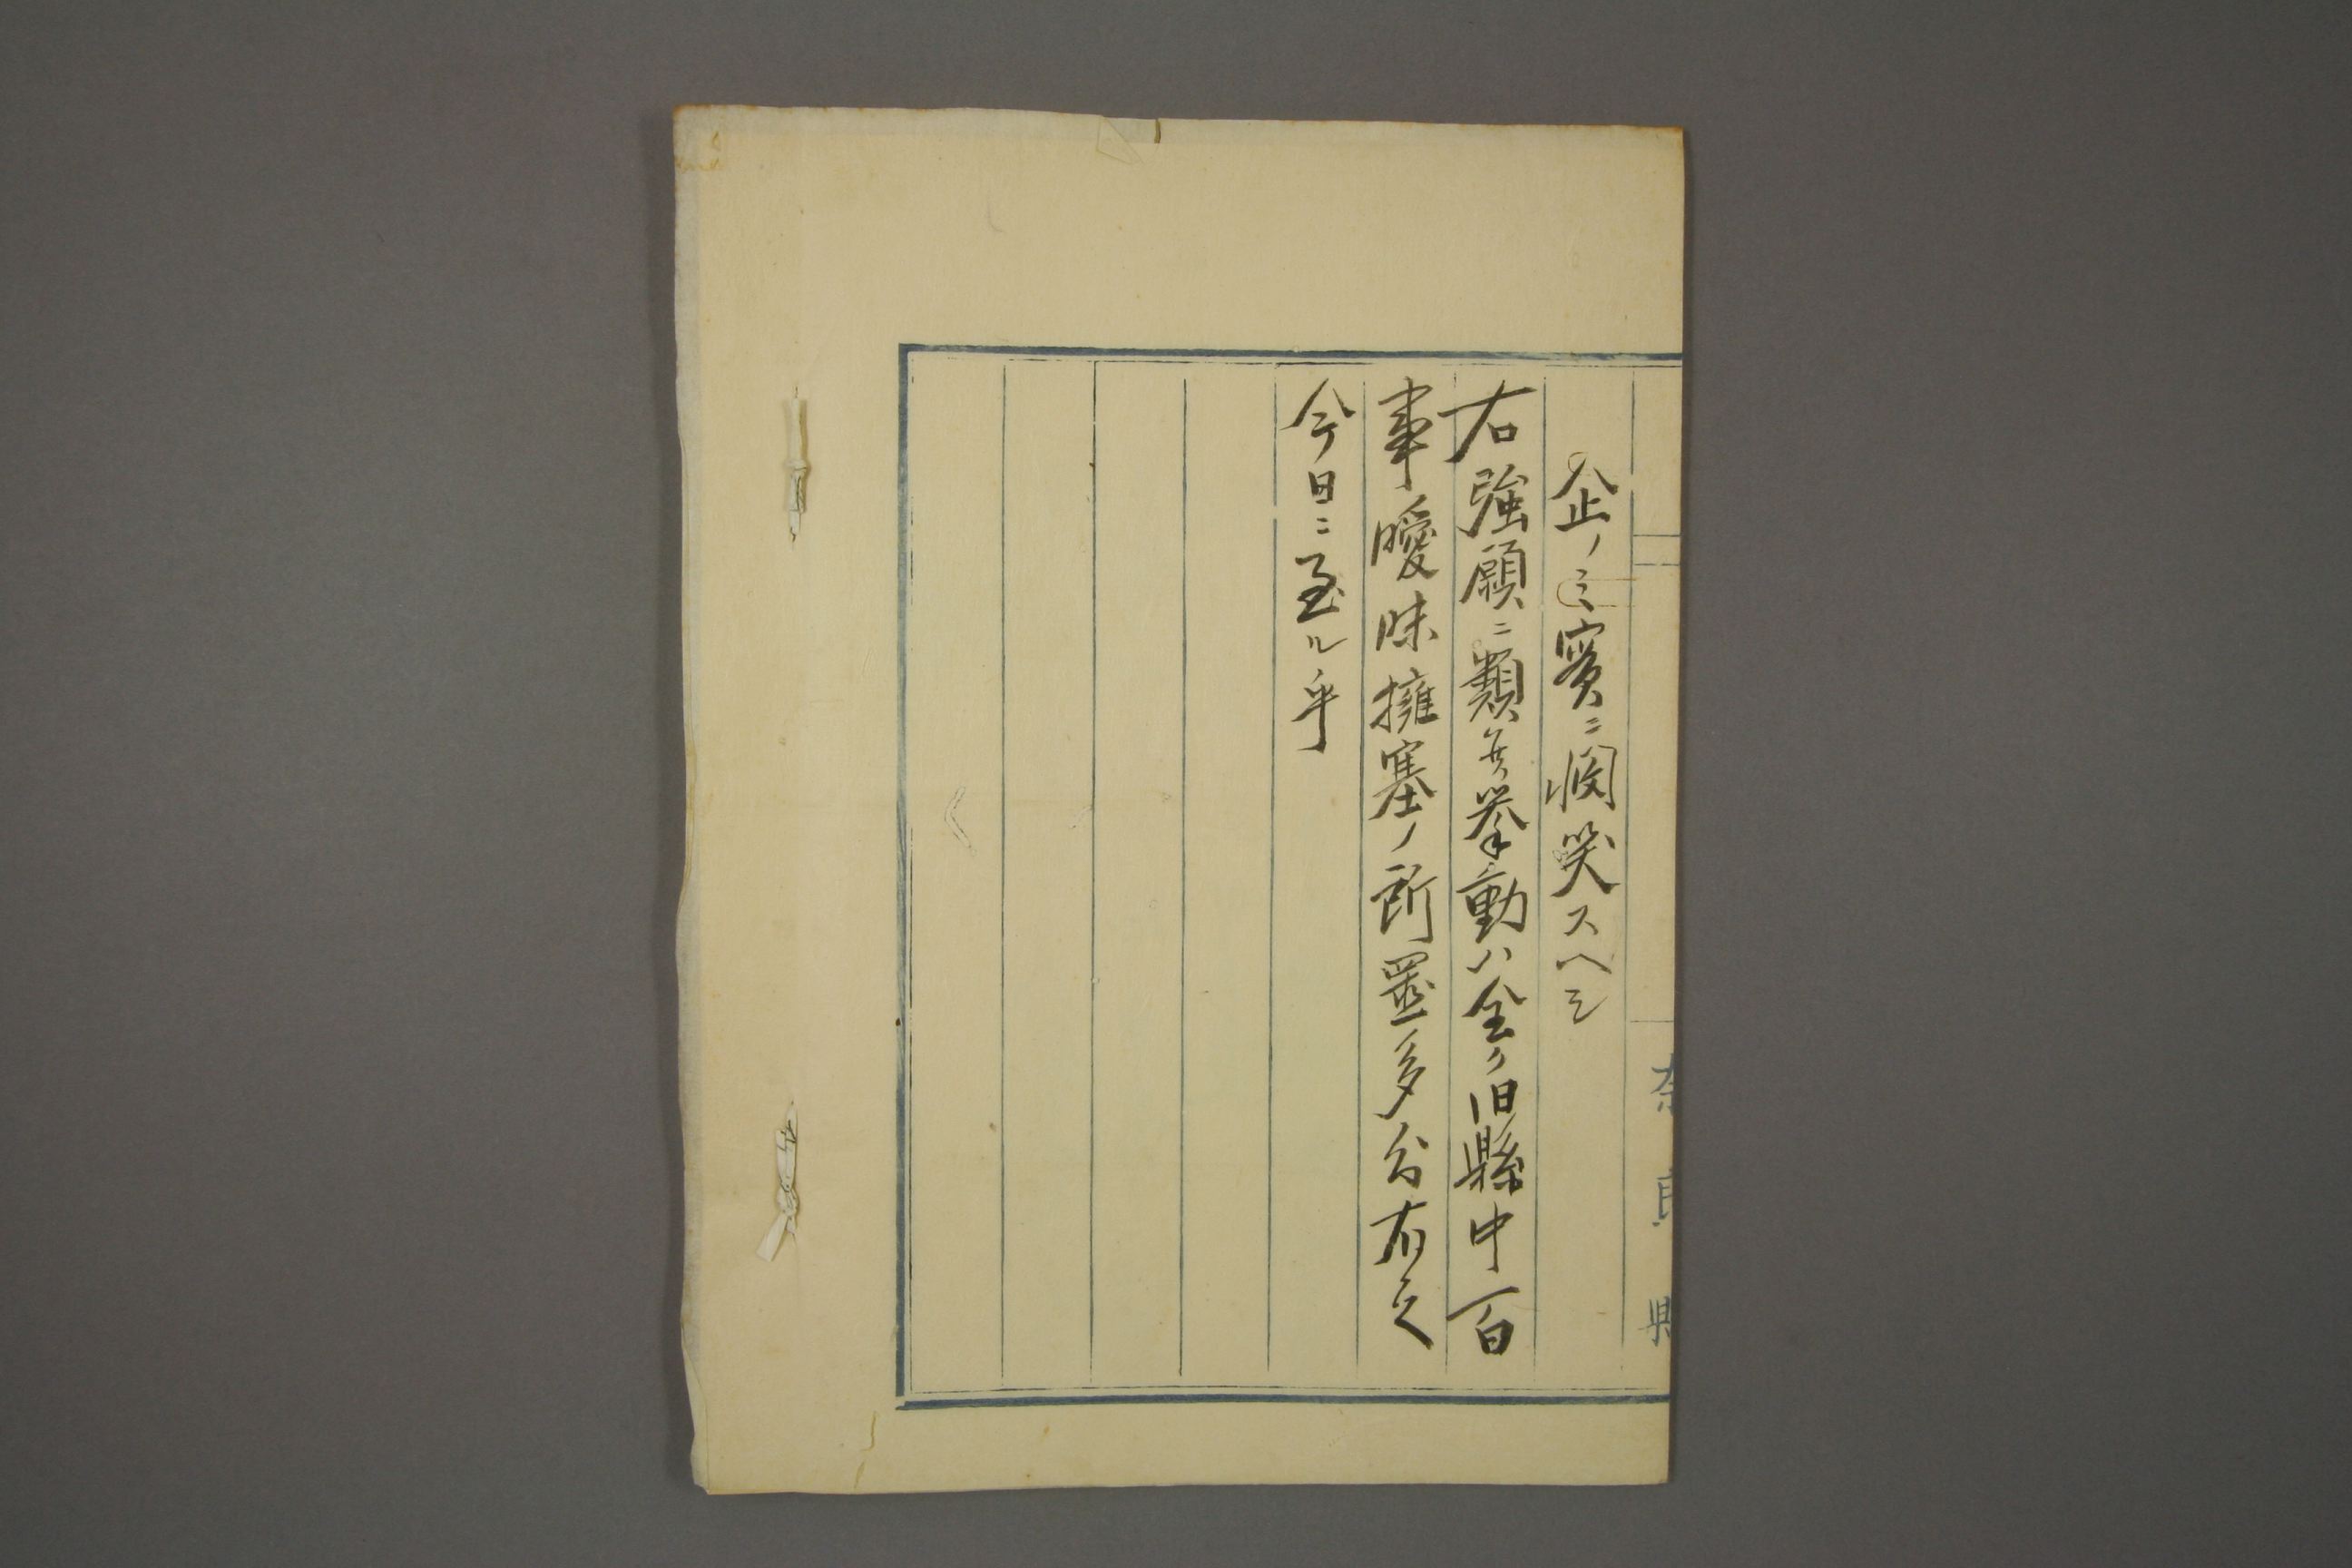 企ノミ実ニ憫笑スヘシ
右強願ニ類スル挙動ハ全ク旧縣中百
事曖昧擁塞ノ所置多分有之
今日ニ至ル乎
奈良縣